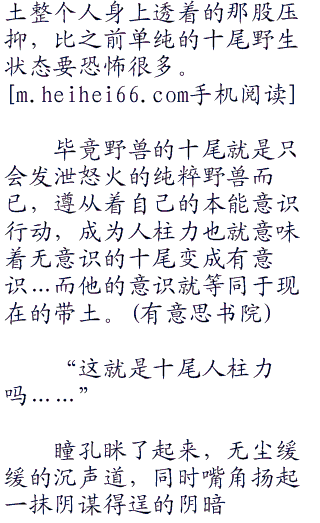 土整个人身上透着的那股压
抑，比之前单纯的十尾野生
状态要恐怖很多。
[m.heihei66.com手机阅读]
毕竟野兽的十尾就是只
会发泄怒火的纯粹野兽而
已，遵从着自己的本能意识
行动，成为人柱力也就意味
着无意识的十尾变成有意
识…而他的意识就等同于现
在的带土。(有意思书院)
“这就是十尾人柱力
吗……”
瞳孔眯了起来，无尘缓
缓的沉声道，同时嘴角扬起
一抹阴谋得逞的阴暗